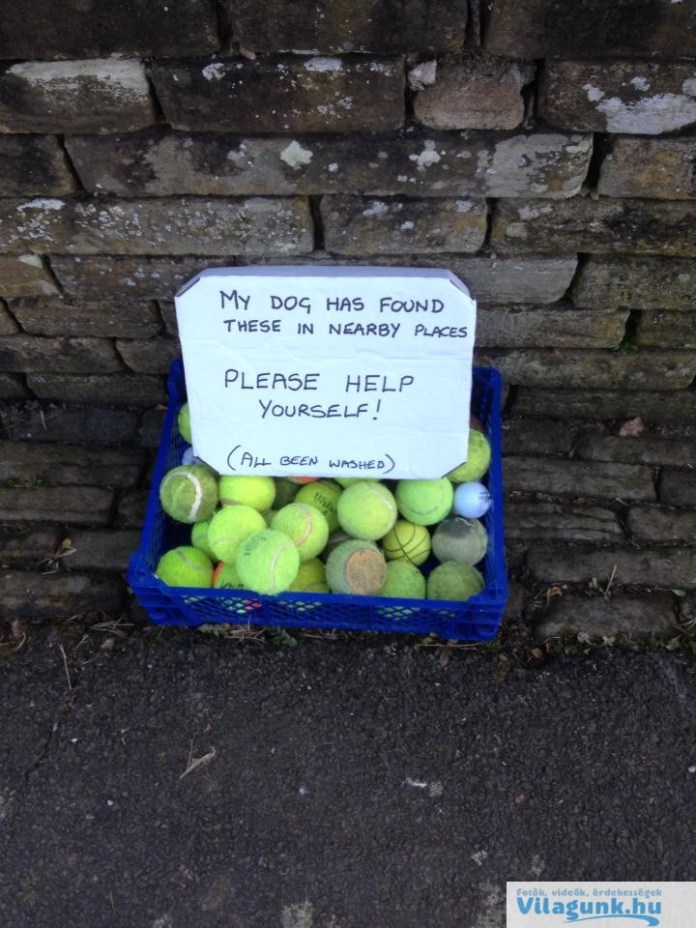 MY DOG HAS FOUND
THESE IN NEARBY PLACES
PLEASE HELP
YOURSELF!
(ALL BEEN WASHED)
Fotók, videók, érdekességek
Vilagunk.hu